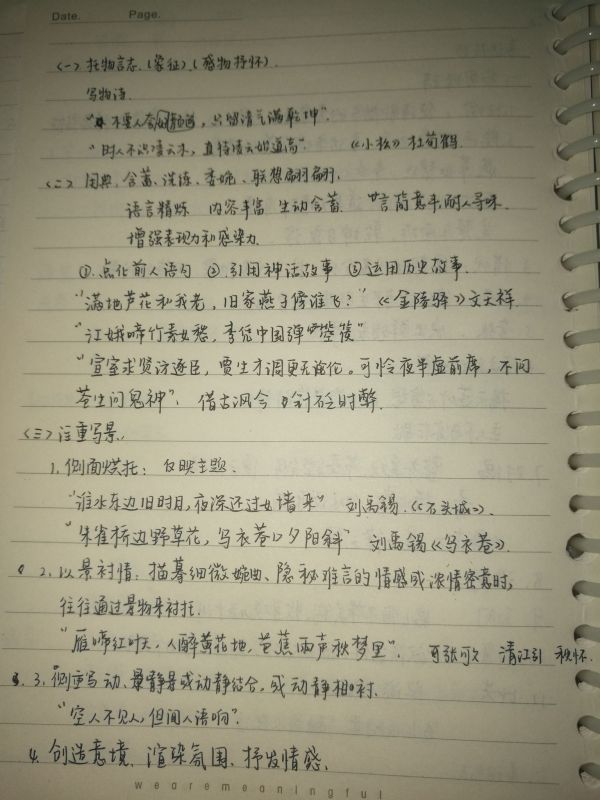 Date.    Page.
(一) 托物言志.(象征).(感物抒怀).
写物诗.
"不要人夸颜色好，只留清气满乾坤".
"时人不识凌云木，直待凌云始道高". 《小松》杜荀鹤.
(二) 用典. 含蓄、洗练、委婉、联想翩翩.
语言精炼 内容丰富 生动含蓄. 言简意丰,耐人寻味.
增强表现力和感染力.
①. 点化前人语句 ②. 引用神话故事 ③ 运用历史故事.
"满地芦花和我老，旧家燕子傍谁飞？" 《金陵驿》文天祥.
"江娥啼竹素女愁，李凭中国弹箜篌"
"宣室求贤访逐臣，贾生才调更无论伦。可怜夜半虚前席，不问
苍生问鬼神"； 借古讽今 针砭时弊.
(三) 注重写景.
1. 侧面烘托： 反映主题.
"淮水东边旧时月,夜深还过女墙来" 刘禹锡.《石头城》.
"朱雀桥边野草花，乌衣巷口夕阳斜" 刘禹锡《乌衣巷》.
2. 以景衬情：描摹细微婉曲、隐秘难言的情感或浓情密意时,
往往通过景物来衬托.
"雁啼红叶天，人醉黄花地，芭蕉雨声秋梦里". 张可久 清江引 秋怀.
3. 侧重写动、静景或动静结合，或动静相衬.
"空人不见人，但闻人语响".
4. 创造意境、渲染氛围、抒发情感.
wearemeaningful